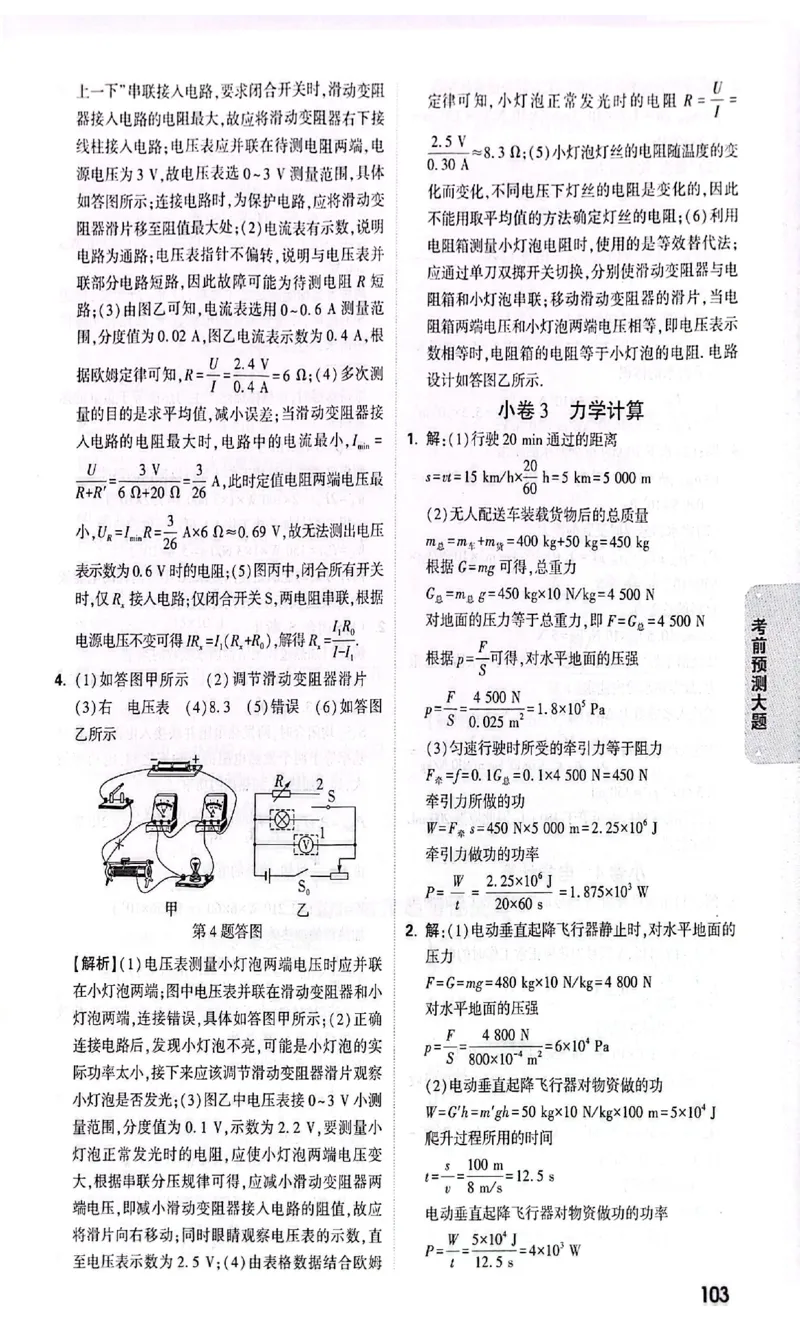 上一下”串联接入电路,要求闭合开关时,滑动变阻
器接入电路的电阻最大,故应将滑动变阻器右下接
线柱接入电路;电压表应并联在待测电阻两端,电
源电压为 3 V,故电压表选 0~3 V 测量范围,具体
如答图所示;连接电路时,为保护电路,应将滑动变
阻器滑片移至阻值最大处;(2)电流表有示数,说明
电路为通路;电压表指针不偏转,说明与电压表并
联部分电路短路,因此故障可能为待测电阻 R 短
路;(3)由图乙可知,电流表选用 0~0.6 A 测量范
围,分度值为 0.02 A,图乙电流表示数为 0.4 A,根
据欧姆定律可知,R=U/I=2.4 V/0.4 A=6 Ω;(4)多次测
量的目的是求平均值,减小误差;当滑动变阻器接
入电路的电阻最大时,电路中的电流最小,I_min =
U/(R+R′)=3 V/(6 Ω+20 Ω)=3/26 A,此时定值电阻两端电压最
小,U_R=I_min R=3/26 A×6 Ω≈0.69 V,故无法测出电压
表示数为0.6 V时的电阻;(5)图丙中,闭合所有开关
时,仅 R_x 接入电路;仅闭合开关 S,两电阻串联,根据
电源电压不变可得 IR_x=I₁(R_x+R₀),解得 R_x=I₁R₀/(I-I₁).
4. (1)如答图甲所示 (2)调节滑动变阻器滑片
(3)右 电压表 (4)8.3 (5)错误 (6)如答图
乙所示
R_x 2
S
1
V
S₀
甲 乙
第 4 题答图
【解析】(1)电压表测量小灯泡两端电压时应并联
在小灯泡两端;图中电压表并联在滑动变阻器和小
灯泡两端,连接错误,具体如答图甲所示;(2)正确
连接电路后,发现小灯泡不亮,可能是小灯泡的实
际功率太小,接下来应该调节滑动变阻器滑片观察
小灯泡是否发光;(3)图乙中电压表接 0~3 V 小测
量范围,分度值为 0.1 V,示数为 2.2 V,要测量小
灯泡正常发光时的电阻,应使小灯泡两端电压变
大,根据串联分压规律可得,应减小滑动变阻器两
端电压,即减小滑动变阻器接入电路的阻值,故应
将滑片向右移动;同时眼睛观察电压表的示数,直
至电压表示数为 2.5 V;(4)由表格数据结合欧姆
定律可知,小灯泡正常发光时的电阻 R=U/I=
2.5 V/0.30 A≈8.3 Ω;(5)小灯泡灯丝的电阻随温度的变
化而变化,不同电压下灯丝的电阻是变化的,因此
不能用取平均值的方法确定灯丝的电阻;(6)利用
电阻箱测量小灯泡电阻时,使用的是等效替代法;
应通过单刀双掷开关切换,分别使滑动变阻器与电
阻箱和小灯泡串联;移动滑动变阻器的滑片,当电
阻箱两端电压和小灯泡两端电压相等,即电压表示
数相等时,电阻箱的电阻等于小灯泡的电阻. 电路
设计如答图乙所示.
小卷 3 力学计算
1. 解:(1)行驶 20 min 通过的距离
s=vt=15 km/h×20/60 h=5 km=5 000 m
(2)无人配送车装载货物后的总质量
m总=m车+m货=400 kg+50 kg=450 kg
根据 G=mg 可得,总重力
G总=m总g=450 kg×10 N/kg=4 500 N
对地面的压力等于总重力,即 F=G总=4 500 N
根据 p=F/S可得,对水平地面的压强
p=F/S=4 500 N/0.025 m²=1.8×10⁵ Pa
(3)匀速行驶时所受的牵引力等于阻力
F牵=f=0.1G总=0.1×4 500 N=450 N
牵引力所做的功
W=F牵 s=450 N×5 000 m=2.25×10⁶ J
牵引力做功的功率
P=W/t=2.25×10⁶ J/20×60 s=1.875×10³ W
2. 解:(1)电动垂直起降飞行器静止时,对水平地面的
压力
F=G=mg=480 kg×10 N/kg=4 800 N
对水平地面的压强
p=F/S=4 800 N/800×10⁻⁴ m²=6×10⁴ Pa
(2)电动垂直起降飞行器对物资做的功
W=G′h=m′gh=50 kg×10 N/kg×100 m=5×10⁴ J
爬升过程所用的时间
t=s/v=100 m/8 m/s=12.5 s
电动垂直起降飞行器对物资做功的功率
P=W/t=5×10⁴ J/12.5 s=4×10³ W
考前预测大题
103